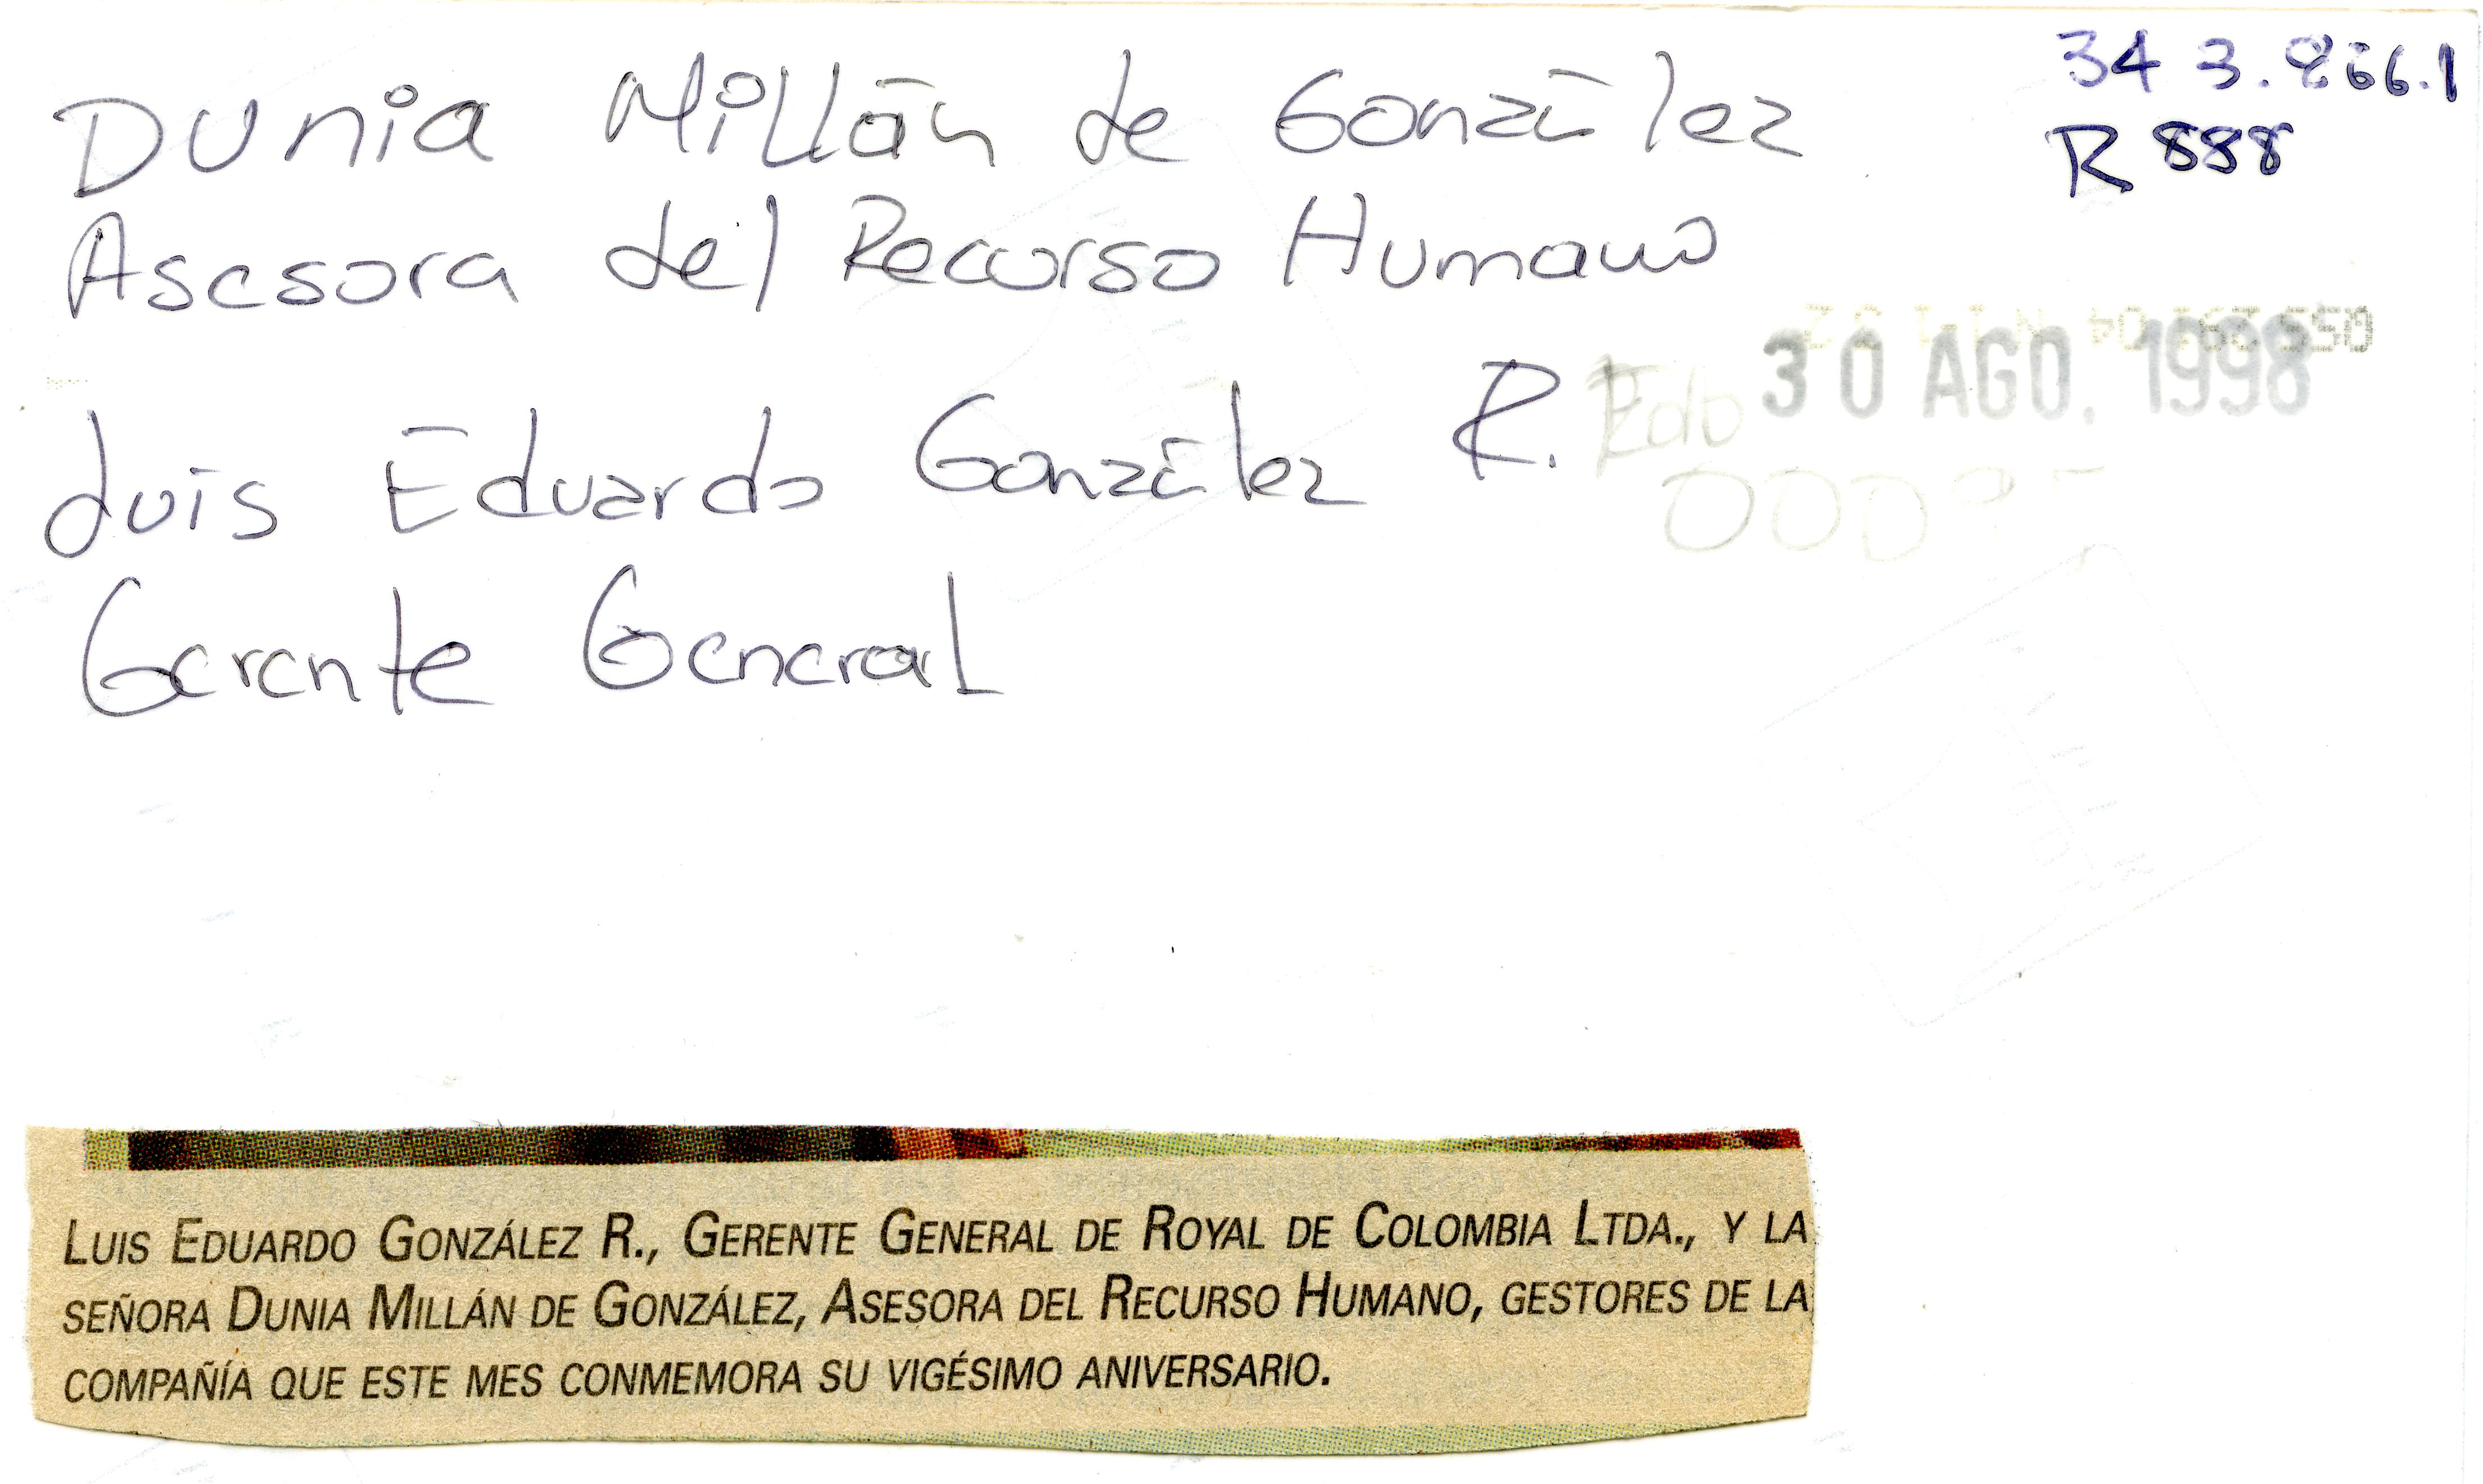 34 3.866.1
R 888
Dunia Millán de González
Asesora del Recurso Humano
30 AGO. 1998
Luis Eduardo González R.
Edo
Gerente General
LUIS EDUARDO GONZÁLEZ R., GERENTE GENERAL DE ROYAL DE COLOMBIA LTDA., Y LA
SEÑORA DUNIA MILLÁN DE GONZÁLEZ, ASESORA DEL RECURSO HUMANO, GESTORES DE LA
COMPAÑÍA QUE ESTE MES CONMEMORA SU VIGÉSIMO ANIVERSARIO.